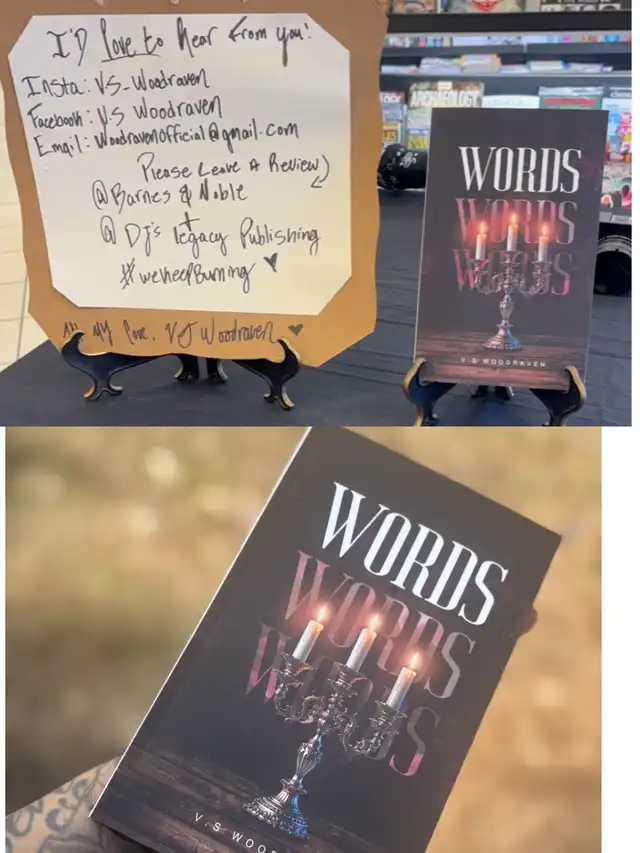 I'D Love to Hear From you!
Insta: VS-Woodraven
Facebook: VS Woodraven
Email: Woodravenofficial@gmail.com
Please Leave A Review
@Barnes & Noble
+
@ Dj's Legacy Publishing
#weKeepBurning
All My Love, VS Woodraven
ARCHAEOLOGY
WORDS
WORDS
WORDS
V S WOODRAVEN
WORDS
WORDS
WORDS
V S WOO